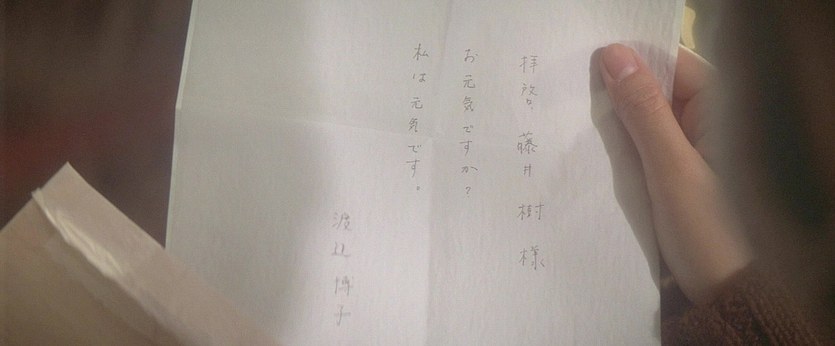 拝啓、藤井 樹 様、
お元気ですか？
私は元気です。
渡辺 博子